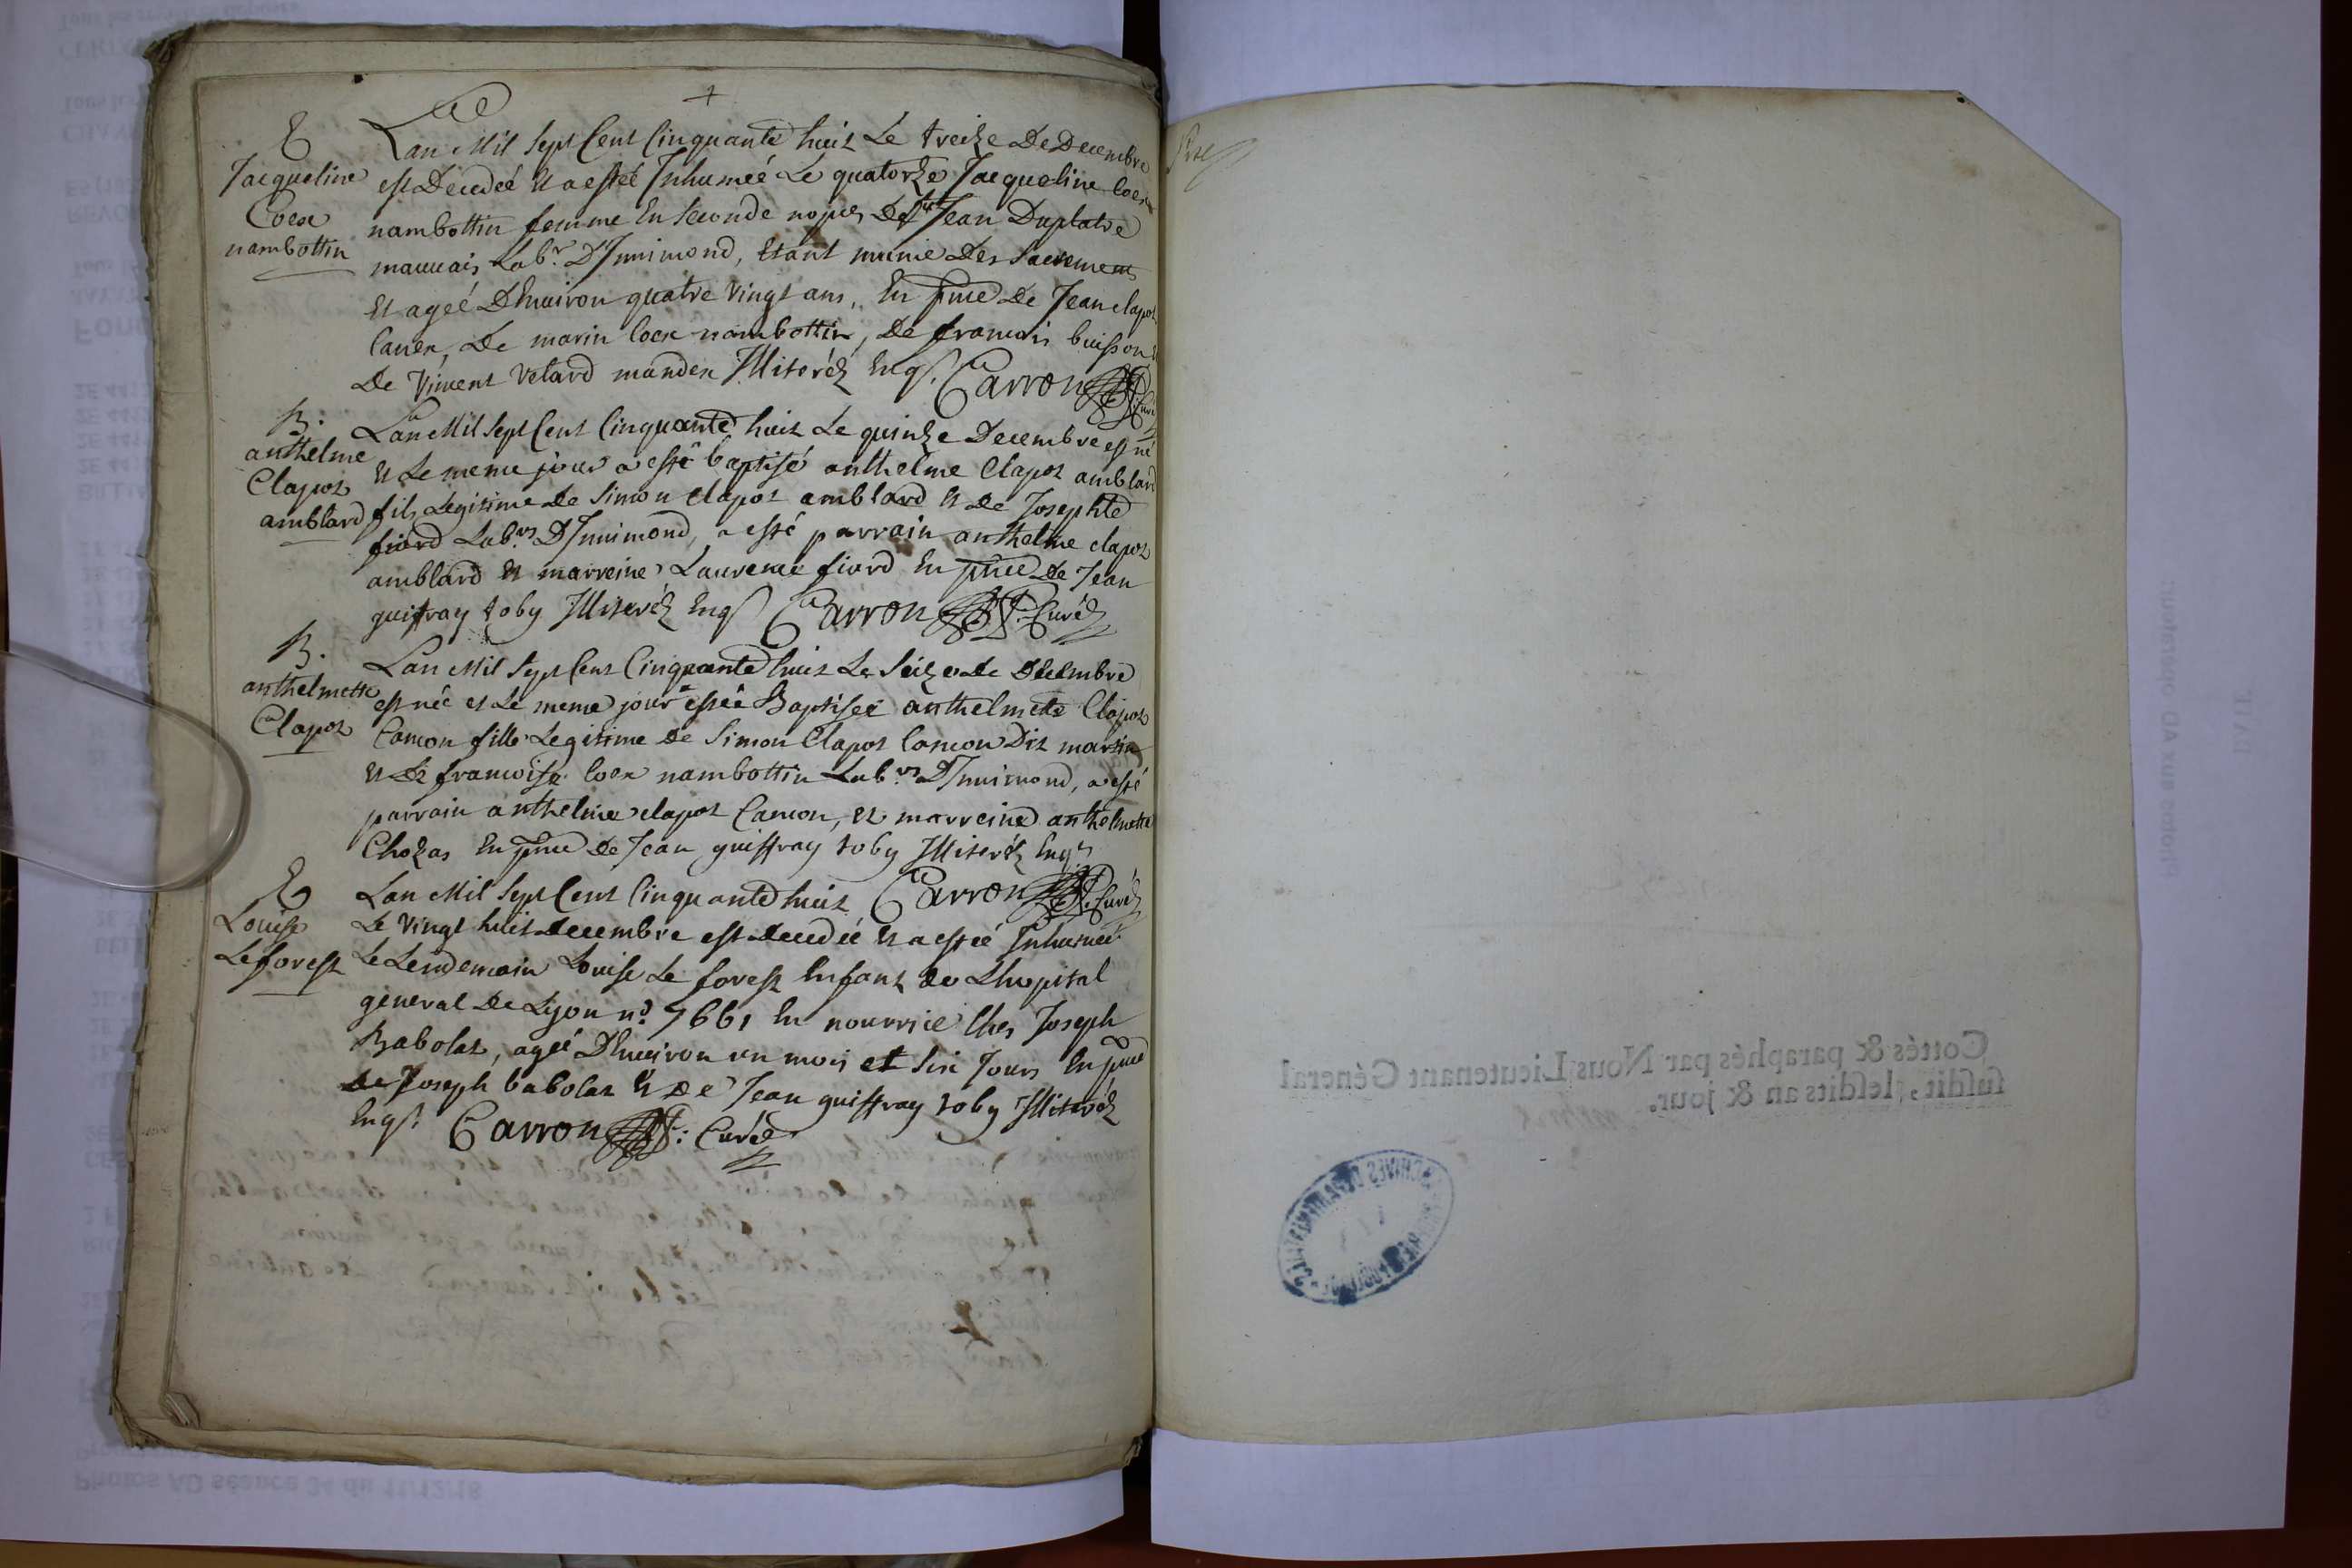 E
Jacqueline
Coex
nambottin
Lan Mil Sept Cent Cinquante huit Le treize De Decembre
est Decedeé Et a esteé Inhumeé Le quatorze Jacqueline Coex
nambottin femme En Seconde nopces De fut Jean Duplatre
mauuais Labr. D'Innimond, Etant munie Des Sacremens
Et ageé D'Enuiron quatre Vingt ans, En pnce De Jean clapot
De marin Coex nambottin, De francois buisson Et
De Viment Velard manden Illiterés Enqs. Carron Curé
B.
anthelme
Clapot
amblard
Lan Mil Sept Cent Cinquante huit Le quinze Decembre est né
Et Le meme jour a esté baptisé anthelme Clapot amblard
fils Legitime de Simon Clapot amblard Et de Josephte
fiard Labrs D'Innimond, a esté parrain anthelme clapot
amblard Et marreine Laurence fiard En pnce De Jean
guiffray toby Illiterés Enqs Carron Curé
B.
anthelmette
Clapot
Lan Mil Sept Cent Cinquante huit Le Seize de Decembre
est neé et Le meme jour a esteé Baptiseé anthelmette Clapot
Camon fille Legitime De Simon Clapot Camon Dit martin
Et De francoise Coex nambottin Labrs D'Innimond, a esté
parrain anthelme clapot Camon, et marreine anthelmette
Chozas En pnce De Jean guiffray toby Illiterés Enqs
Carron Curé
E
Louise
Leforest
Lan Mil Sept Cent Cinquante huit
Le Vingt huit decembre est decedeé Et a esteé Inhumeé
Le Lendemain Louise Le forest Enfant de Lhopital
general De Lyon no. 7661 En nourrice Ches Joseph
Babolat, ageé D'Enuiron un mois et Six Jours En pnce
de Joseph babolat Et De Jean guiffray toby Illiterés
Enqs. Carron Curé
Cottés & paraphés par Nous Lieutenant Géneral
susdit, lesdits an & jour.